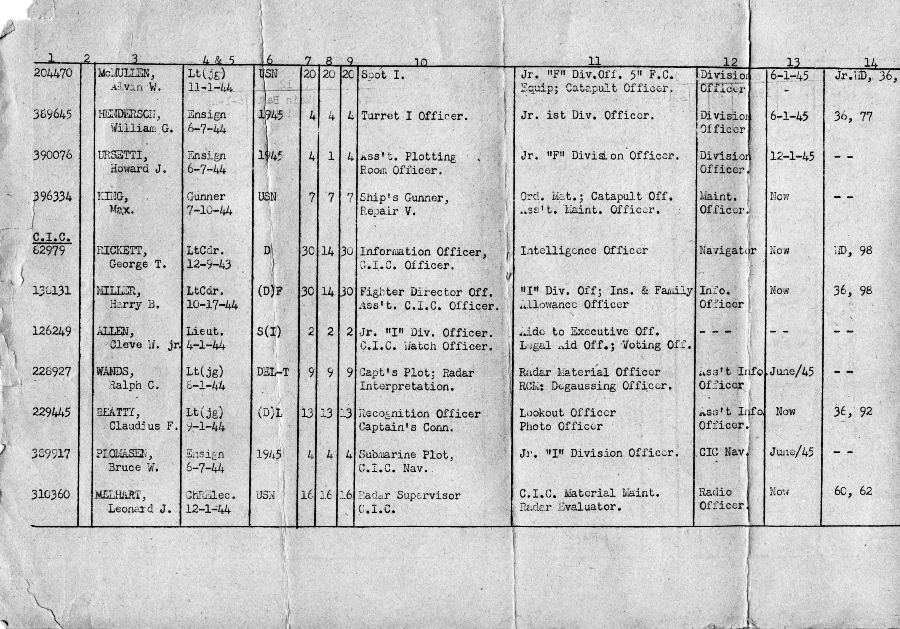 1 2 3 4 & 5 6 7 8 9 10 11 12 13 14
204470 McMULLEN, Lt(jg) USN 20 20 20 Spot I. Jr. "F" Div.Off. 5" F.C. Division 6-1-45 Jr.WD, 36,
Alvin W. 11-1-44 Equip; Catapult Officer. Officer -
389645 HENDERSON, Ensign 1945 4 4 4 Turret I Officer. Jr. ist Div. Officer. Division 6-1-45 36, 77
William G. 6-7-44 Officer
390076 URSETTI, Ensign 1945 4 1 4 Ass't. Plotting Jr. "F" Division Officer. Division 12-1-45 - -
Howard J. 6-7-44 Room Officer. Officer.
396334 KING, Gunner USN 7 7 7 Ship's Gunner, Ord. Mat.; Catapult Off. Maint. Now - -
Max. 7-10-44 Repair V. Ass't. Maint. Officer. Officer.
C.I.C.
82979 RICKETT, LtCdr. D 30 14 30 Information Officer, Intelligence Officer Navigator Now WD, 98
George T. 12-9-43 C.I.C. Officer.
138131 MILLER, LtCdr. (D)F 30 14 30 Fighter Director Off. "I" Div. Off; Ins. & Family Info. Now 36, 98
Harry B. 10-17-44 Ass't. C.I.C. Officer. Allowance Officer Officer
126249 ALLEN, Lieut. S(I) 2 2 2 Jr. "I" Div. Officer. Aide to Executive Off. - - - - - - -
Cleve W. jr. 4-1-44 C.I.C. Watch Officer. Legal Aid Off.; Voting Off.
228927 WANDS, Lt(jg) DEL-T 9 9 9 Capt's Plot; Radar Radar Material Officer Ass't Info. June/45 - -
Ralph C. 8-1-44 Interpretation. RCM: Degaussing Officer. Officer
229445 BEATTY, Lt(jg) (D)L 13 13 13 Recognition Officer Lookout Officer Ass't Info Now 36, 92
Claudius F. 9-1-44 Captain's Conn. Photo Officer Officer.
389917 PLOMASEN, Ensign 1945 4 4 4 Submarine Plot, Jr. "I" Division Officer. CIC Nav. June/45 - -
Bruce W. 6-7-44 C.I.C. Nav.
310360 MELHART, ChRElec. USN 16 16 16 Radar Supervisor C.I.C. Material Maint. Radio Now 60, 62
Leonard J. 12-1-44 C.I.C. Radar Evaluator. Officer.